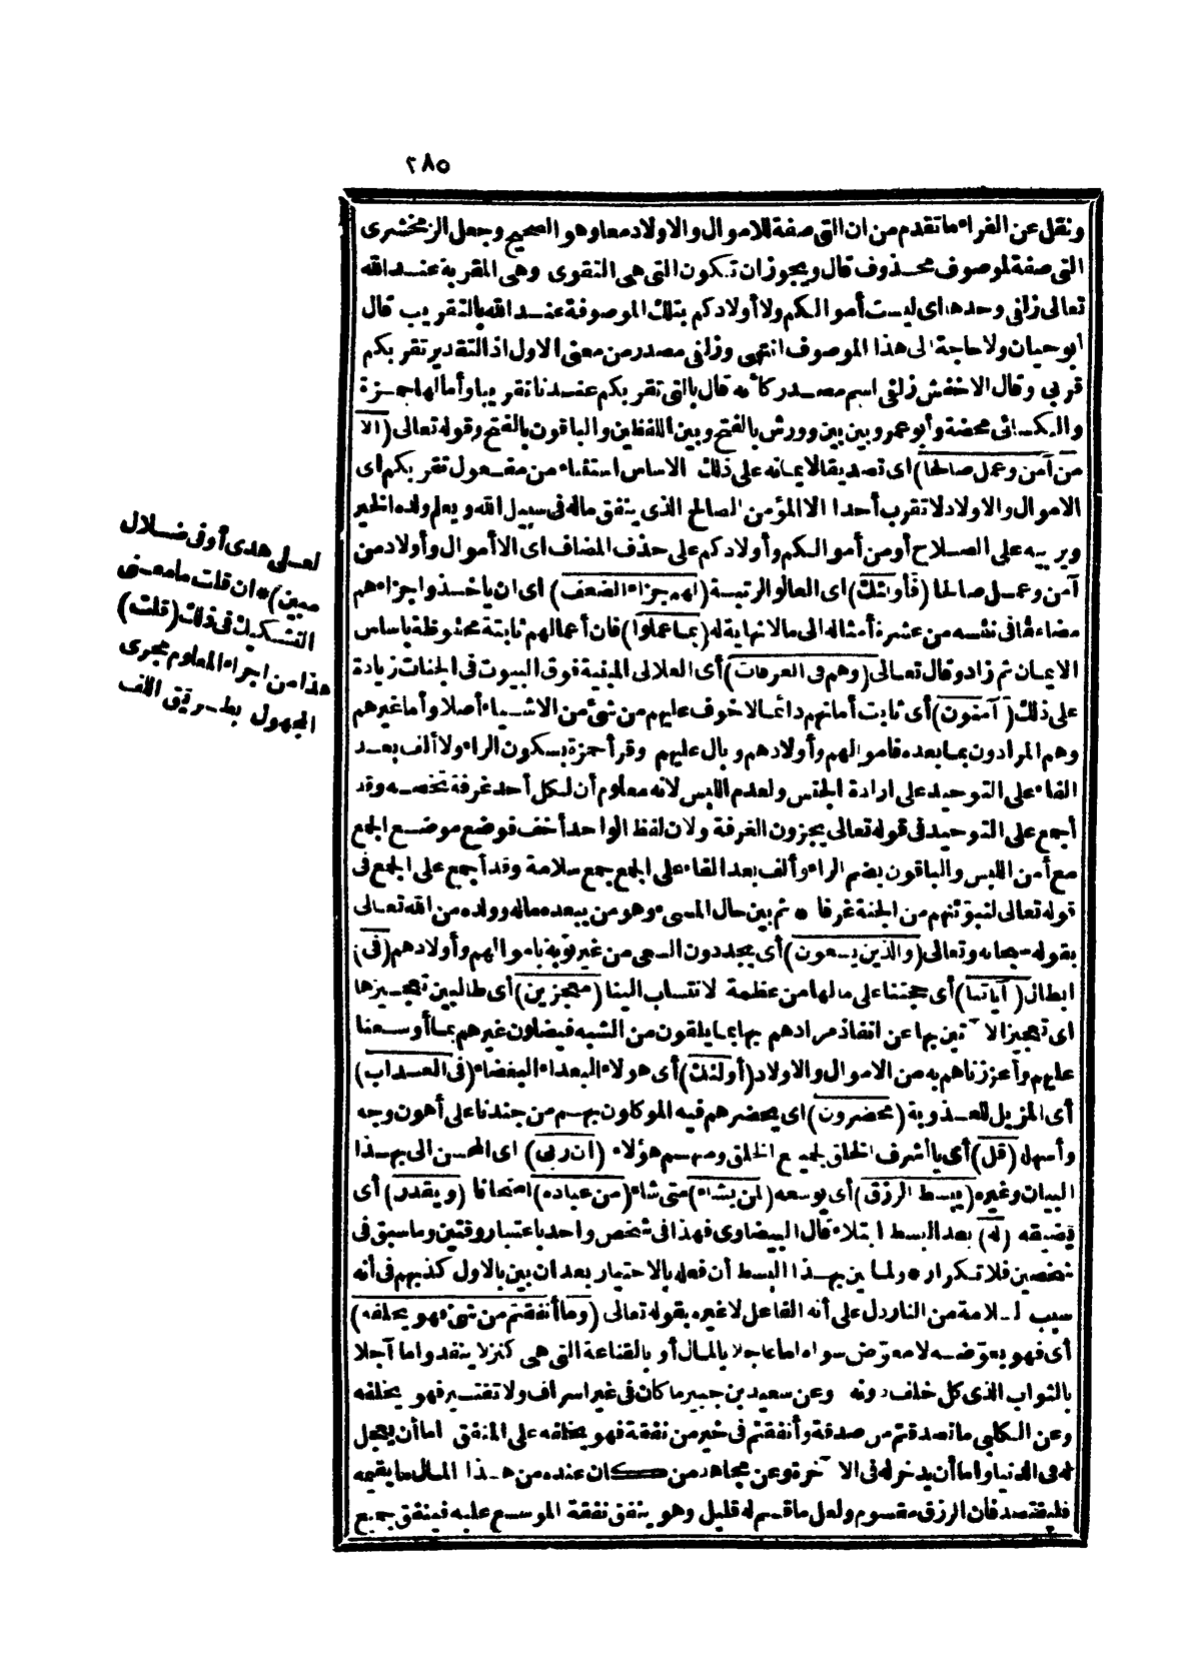 ٢٨٥
ونقل عن الفراء ما تقدم من ان التى صفة للاموال والاولاد معا وهو الصحيح وجعل الزمخشرى
التى صفة لموصوف محذوف قال ويجوز ان تكون التى هى التقوى وهى المقربة عند الله
تعالى زلفى وحدها اى ليست أموالكم ولا أولادكم بتلك الموصوفة عند الله بالتقريب قال
أبو حيان ولا حاجة الى هذا الموصوف انتهى وزلفى مصدر من معنى الاول اذ التقدير تقربكم
قربى وقال الاخفش زلفى اسم مصدر كأنه قال بالتى تقربكم عندنا تقريبا وأمالها حمزة
والكسائى محضة وأبو عمرو بين بين وورش بالفتح وبين اللفظين والباقون بالفتح وقوله تعالى (الا
من آمن وعمل صالحا) اى تصديقا لايمانه على ذلك الاساس استثناء من مفعول تقربكم اى
الاموال والاولاد لا تقرب أحدا الا المؤمن الصالح الذى ينفق ماله فى سبيل الله ويعلم ولده الخير
ويربيه على الصلاح أو من أموالكم وأولادكم على حذف المضاف اى الا أموال وأولاد من
آمن وعمل صالحا (فأولئك) اى العالو الرتبة (لهم جزاء الضعف) اى ان يأخذوا جزاءهم
مضاعفا فى نفسه من عشرة أمثاله الى ما لا نهاية له (بما عملوا) فان أعمالهم ثابتة محفوظة باساس
الايمان ثم زاد وقال تعالى (وهم فى الغرفات) أى العلالى المبنية فوق البيوت فى الجنات زيادة
على ذلك (آمنون) أى ثابت أمانهم دائما لا خوف عليهم من شئ من الاشياء أصلا وأما غيرهم
وهم المرادون بما بعده فاموالهم وأولادهم وبال عليهم وقرأ حمزة بسكون الراء ولا ألف بعد
الفاء على التوحيد على ارادة الجنس ولعدم اللبس لانه معلوم أن لكل أحد غرفة تخصه وقد
أجمع على التوحيد فى قوله تعالى يجزون الغرفة ولان لفظ الواحد أخف فوضع موضع الجمع
مع أمن اللبس والباقون بضم الراء وألف بعد الفاء على الجمع جمع سلامة وقد أجمع على الجمع فى
قوله تعالى لنبوئنهم من الجنة غرفا * ثم بين حال المسىء وهو من يبعده ماله وولده من الله تعالى
بقوله سبحانه وتعالى (والذين يسعون) أى يجددون السعى من غير توبة باموالهم وأولادهم (فى)
ابطال (آياتنا) أى حجتنا على مالها من عظمة لانتساب الينا (معجزين) أى طالبين تعجيزها
اى تعجيز الآتين بها عن انفاذ مرادهم بها بما يلقون من الشبه فيضلون غيرهم بما أوسعنا
عليهم وأعززناهم به من الاموال والاولاد (أولئك) أى هؤلاء البعداء البغضاء (فى العذاب)
أى المزيل للعذوبة (محضرون) اى يحضرهم فيه الموكلون بهم من جندنا على أهون وجه
وأسهله (قل) أى يا أشرف الخلق لجميع الخلق ومنهم هؤلاء (ان ربى) اى المحسن الى بهذا
البيان وغيره (يبسط الرزق) أى يوسعه (لمن يشاء) متى شاء (من عباده) امتحانا (ويقدر) أى
يضيقه (له) بعد البسط ابتلاء قال البيضاوى فهذا فى شخص واحد باعتبار وقتين وما سبق فى
شخصين فلا تكرار * ولما بين بهذا البسط أن فعله بالاختيار بعد ان بين بالاول كذبهم فى أنه
سبب للسلامة من النار دل على أنه الفاعل لا غيره بقوله تعالى (وما أنفقتم من شئ فهو يخلفه)
أى فهو يعوّضه لا معوّض سواه اما عاجلا بالمال أو بالقناعة التى هى كنز لا ينفد واما آجلا
بالثواب الذى كل خلف دونه وعن سعيد بن جبير ما كان فى غير اسراف ولا تقتير فهو يخلفه
وعن الكلبى ما تصدقتم من صدقة وأنفقتم فى خير من نفقة فهو يخلفه على المنفق اما أن يعجل
له فى الدنيا واما أن يدخر له فى الآخرة وعن مجاهد من كان عنده من هذا المال ما يقيمه
فليقتصد فان الرزق مقسوم ولعل ما قسم له قليل وهو ينفق نفقة الموسع عليه فينفق جميع
لعلى هدى أو فى ضلال
مبين) * ان قلت ما معنى
التشكيك فى ذلك (قلت)
هذا من اجراء المعلوم مجرى
المجهول بطريق اللف